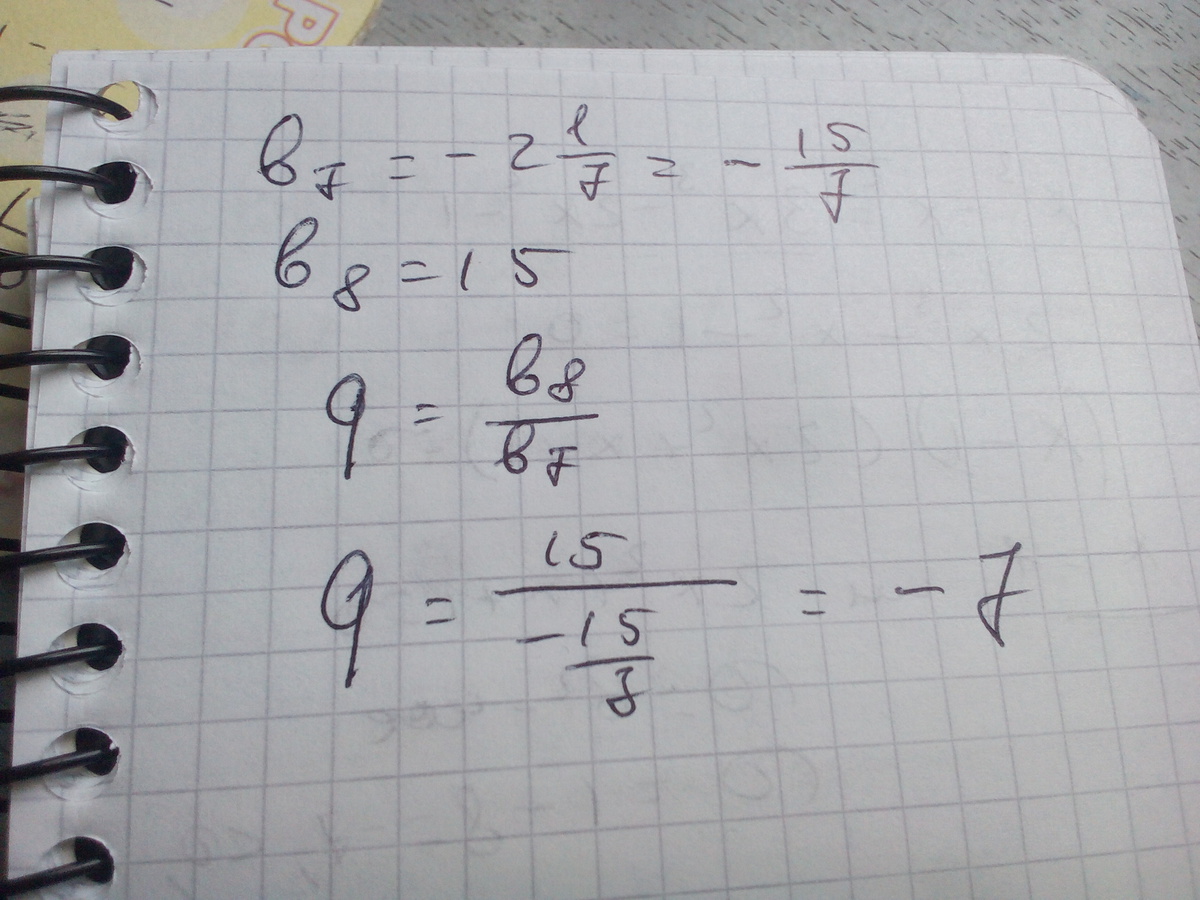 в₇ = - 2 1/7 = - 15/7
в₈ = 15
q = в₈/в₇
q = 15/(-15/7) = - 7